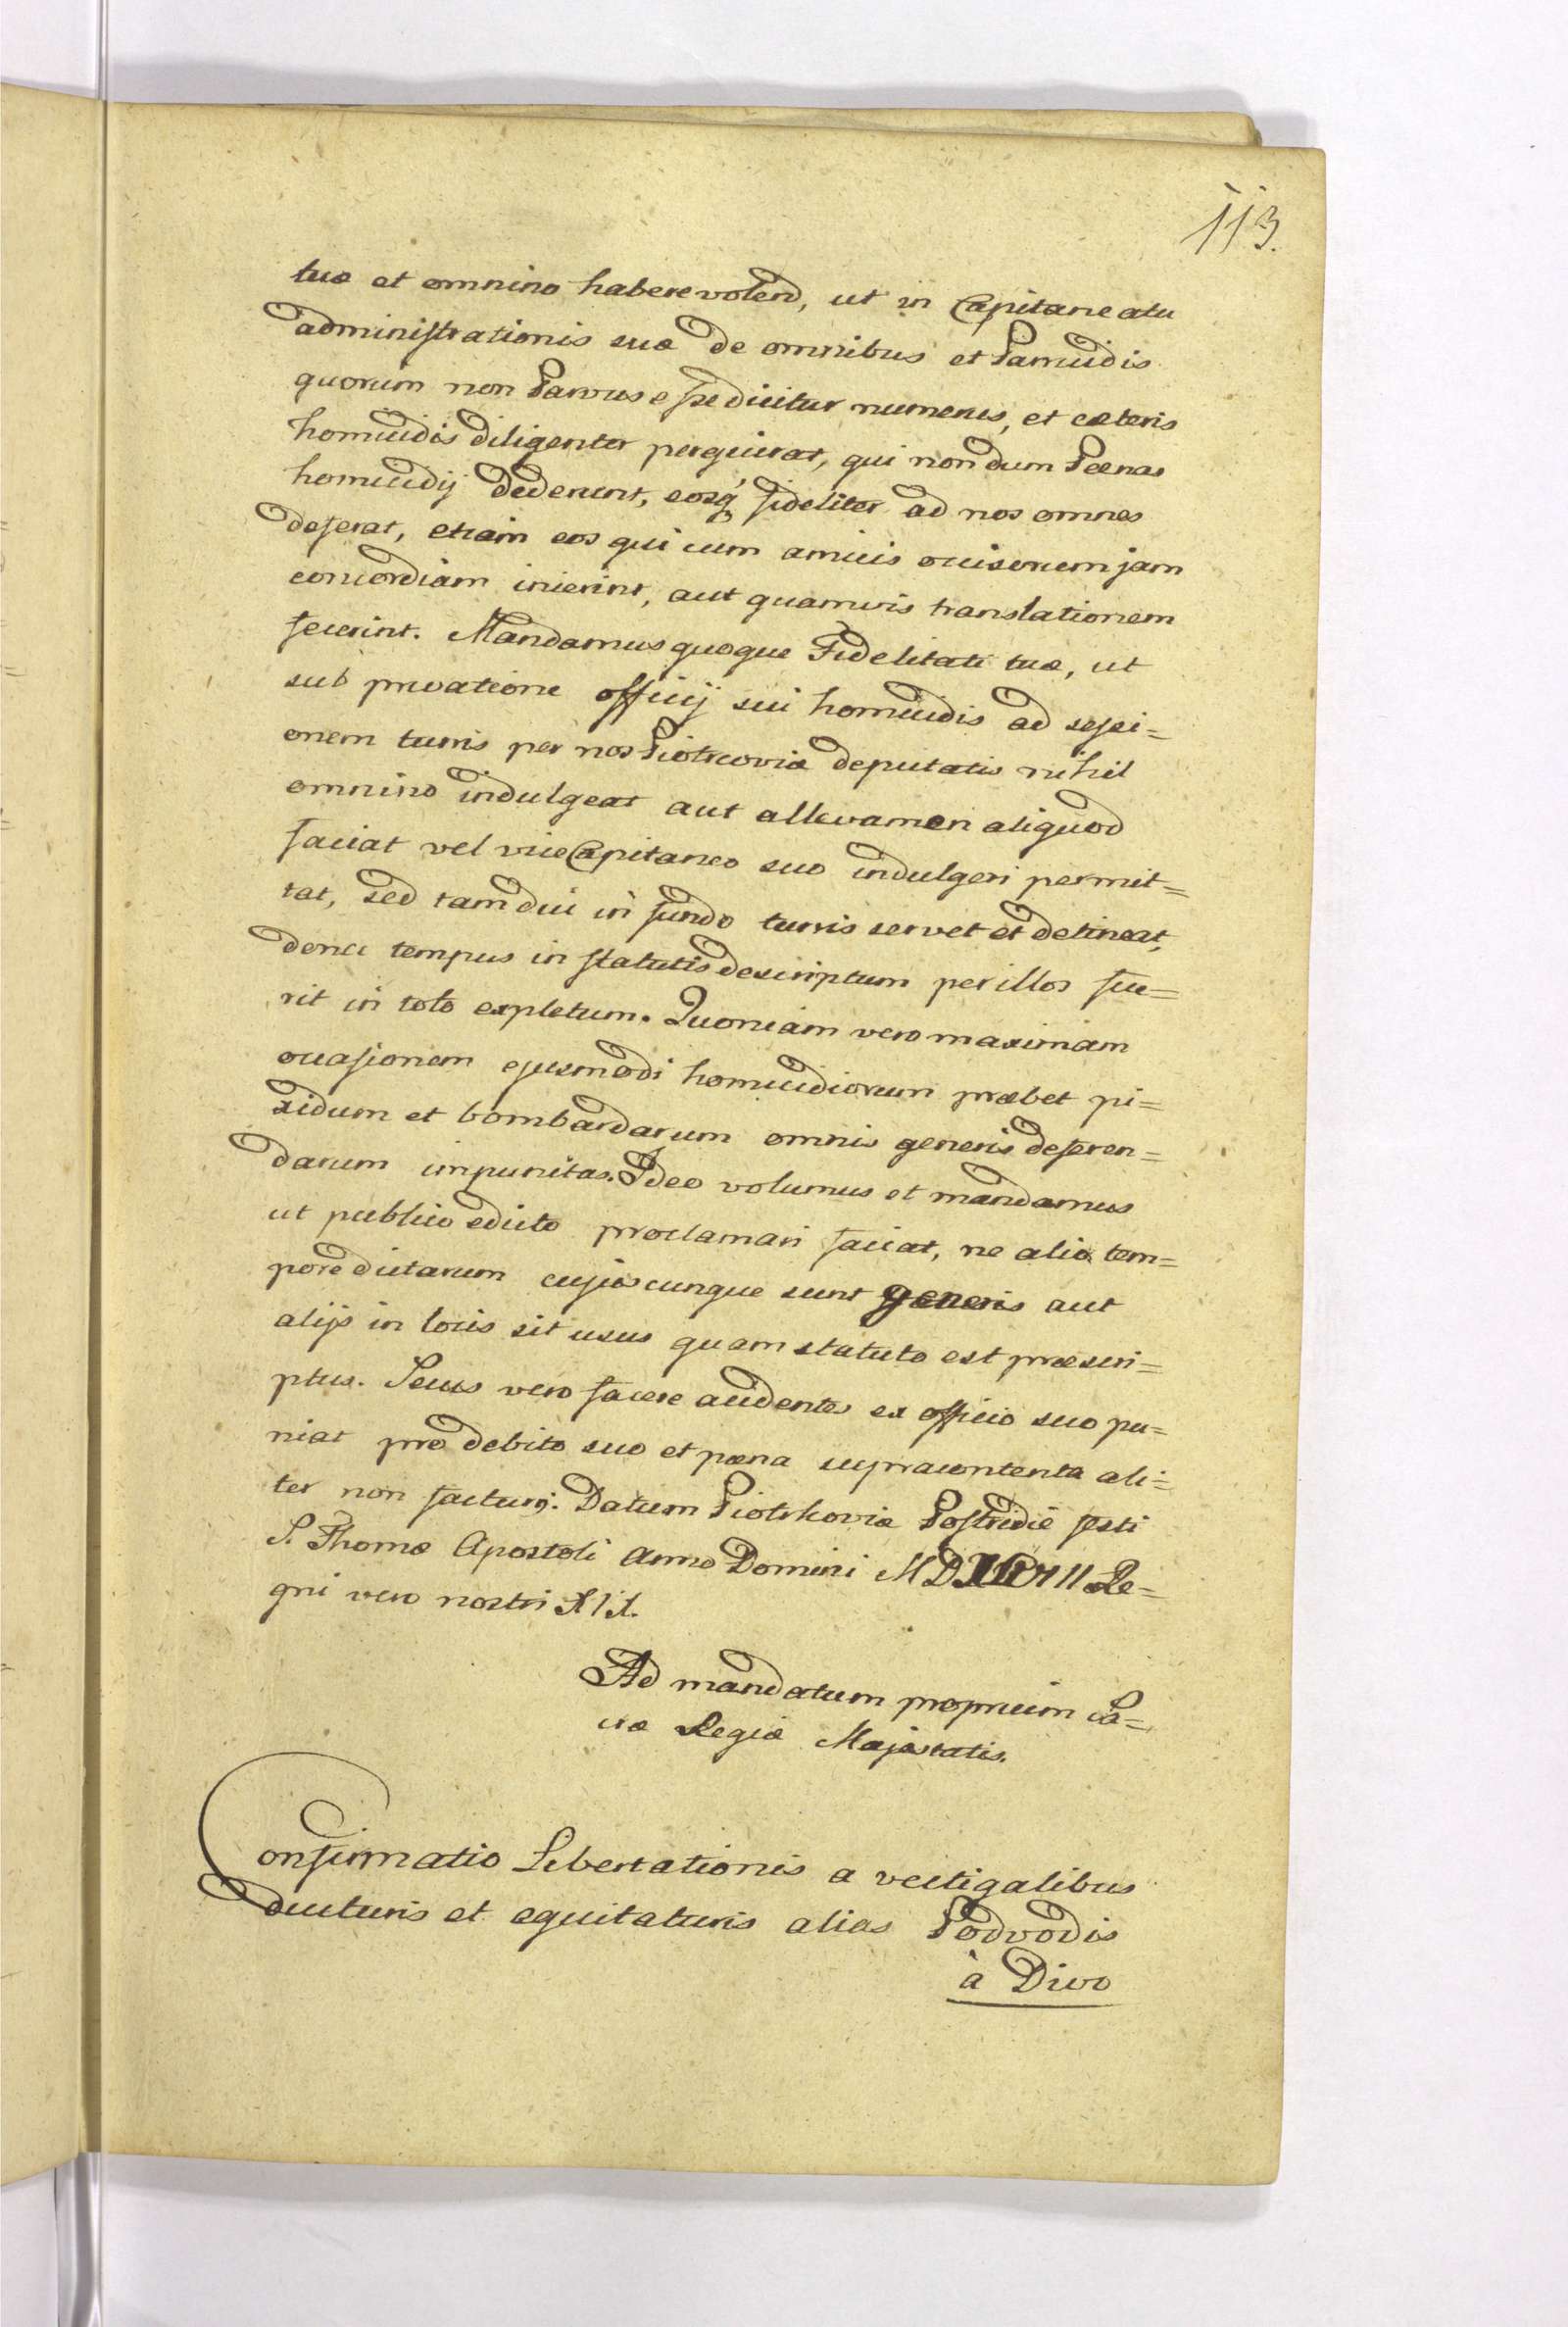 113.
tuæ et omnino habere volend, ut in Capitaneatu
administrationis suæ de omnibus et Pamicidis
quorum non Parvus esse dicitur numerus, et cæteris
homicidis diligenter perquirat, qui nondum Pænas
homicidij dederunt, eosq fideliter ad nos omnes
deferat, etiam eos qui cum amicis occisorum jam
concordiam inierint, aut quamvis translationem
fecerint. Mandamus quoque Fidelitati tuæ, ut
sub privatione officij sui homicidis ad sessi=
onem turris per nos Piotrcoviæ deputatis nihil
omnino indulgeat aut allevamen aliquod
faciat vel vice Capitaneo suo indulgeri permit=
tat, sed tamdiu in fundo turris servet et detineat,
donec tempus in statutis descriptum per illos fue=
rit in toto expletum. Quoniam vero maximam
occasionem ejusmodi homicidiorum præbet pi=
xidum et bombardarum omnis generis deferen=
darum impunitas. Ideo volumus et mandamus
ut publico edicto proclamari faciat, ne alio tem=
pore dictarum cujuscunque sunt generis aut
alijs in locis sit usus quam statuto est præscri=
ptus. Secus vero facere audentes ex officio suo pu=
niat pro debito suo et pœna supracontenta ali=
ter non facturq. Datum Piotrkoviæ Postridie festi
S. Thomæ Apostoli Anno Domini Re=
gni vero nostri XIX.
Ad mandatum proprium Sa=
cræ Regiæ Majestatis.
Confirmatio Libertationis a vectigalibus
ducturis et equitaturis alias Podvodis
à Divo